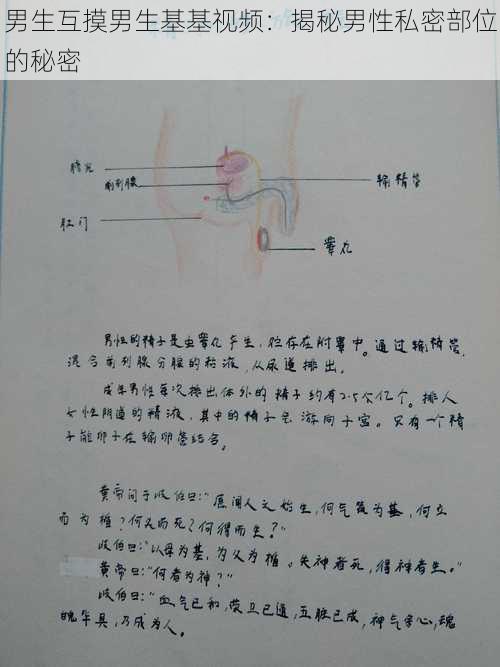 男生互摸男生基基视频：揭秘男性私密部位
的秘密
膀胱
前列腺
输精管
肛门
睾丸
男性的精子是由睾丸产生，贮存在附睾中。通过输精管，
混合前列腺分腺的粘液，从尿道排出。
成年男性每次排出体外的精子约有2.5个亿个。排入
女性阴道的精液，其中的精子会游向子宫。只有一个精
子能卵子在输卵管结合。
黄帝问于岐伯曰："愿闻人之始生，何气筑为基，何立
而为楯？何失而死？何得而生？"
岐伯曰："以母为基，为父为楯。失神者死，得神者生。"
黄帝曰："何者为神？"
岐伯曰："血气已和，荣卫已通，五脏已成，神气舍心，魂
魄毕具，乃成为人。